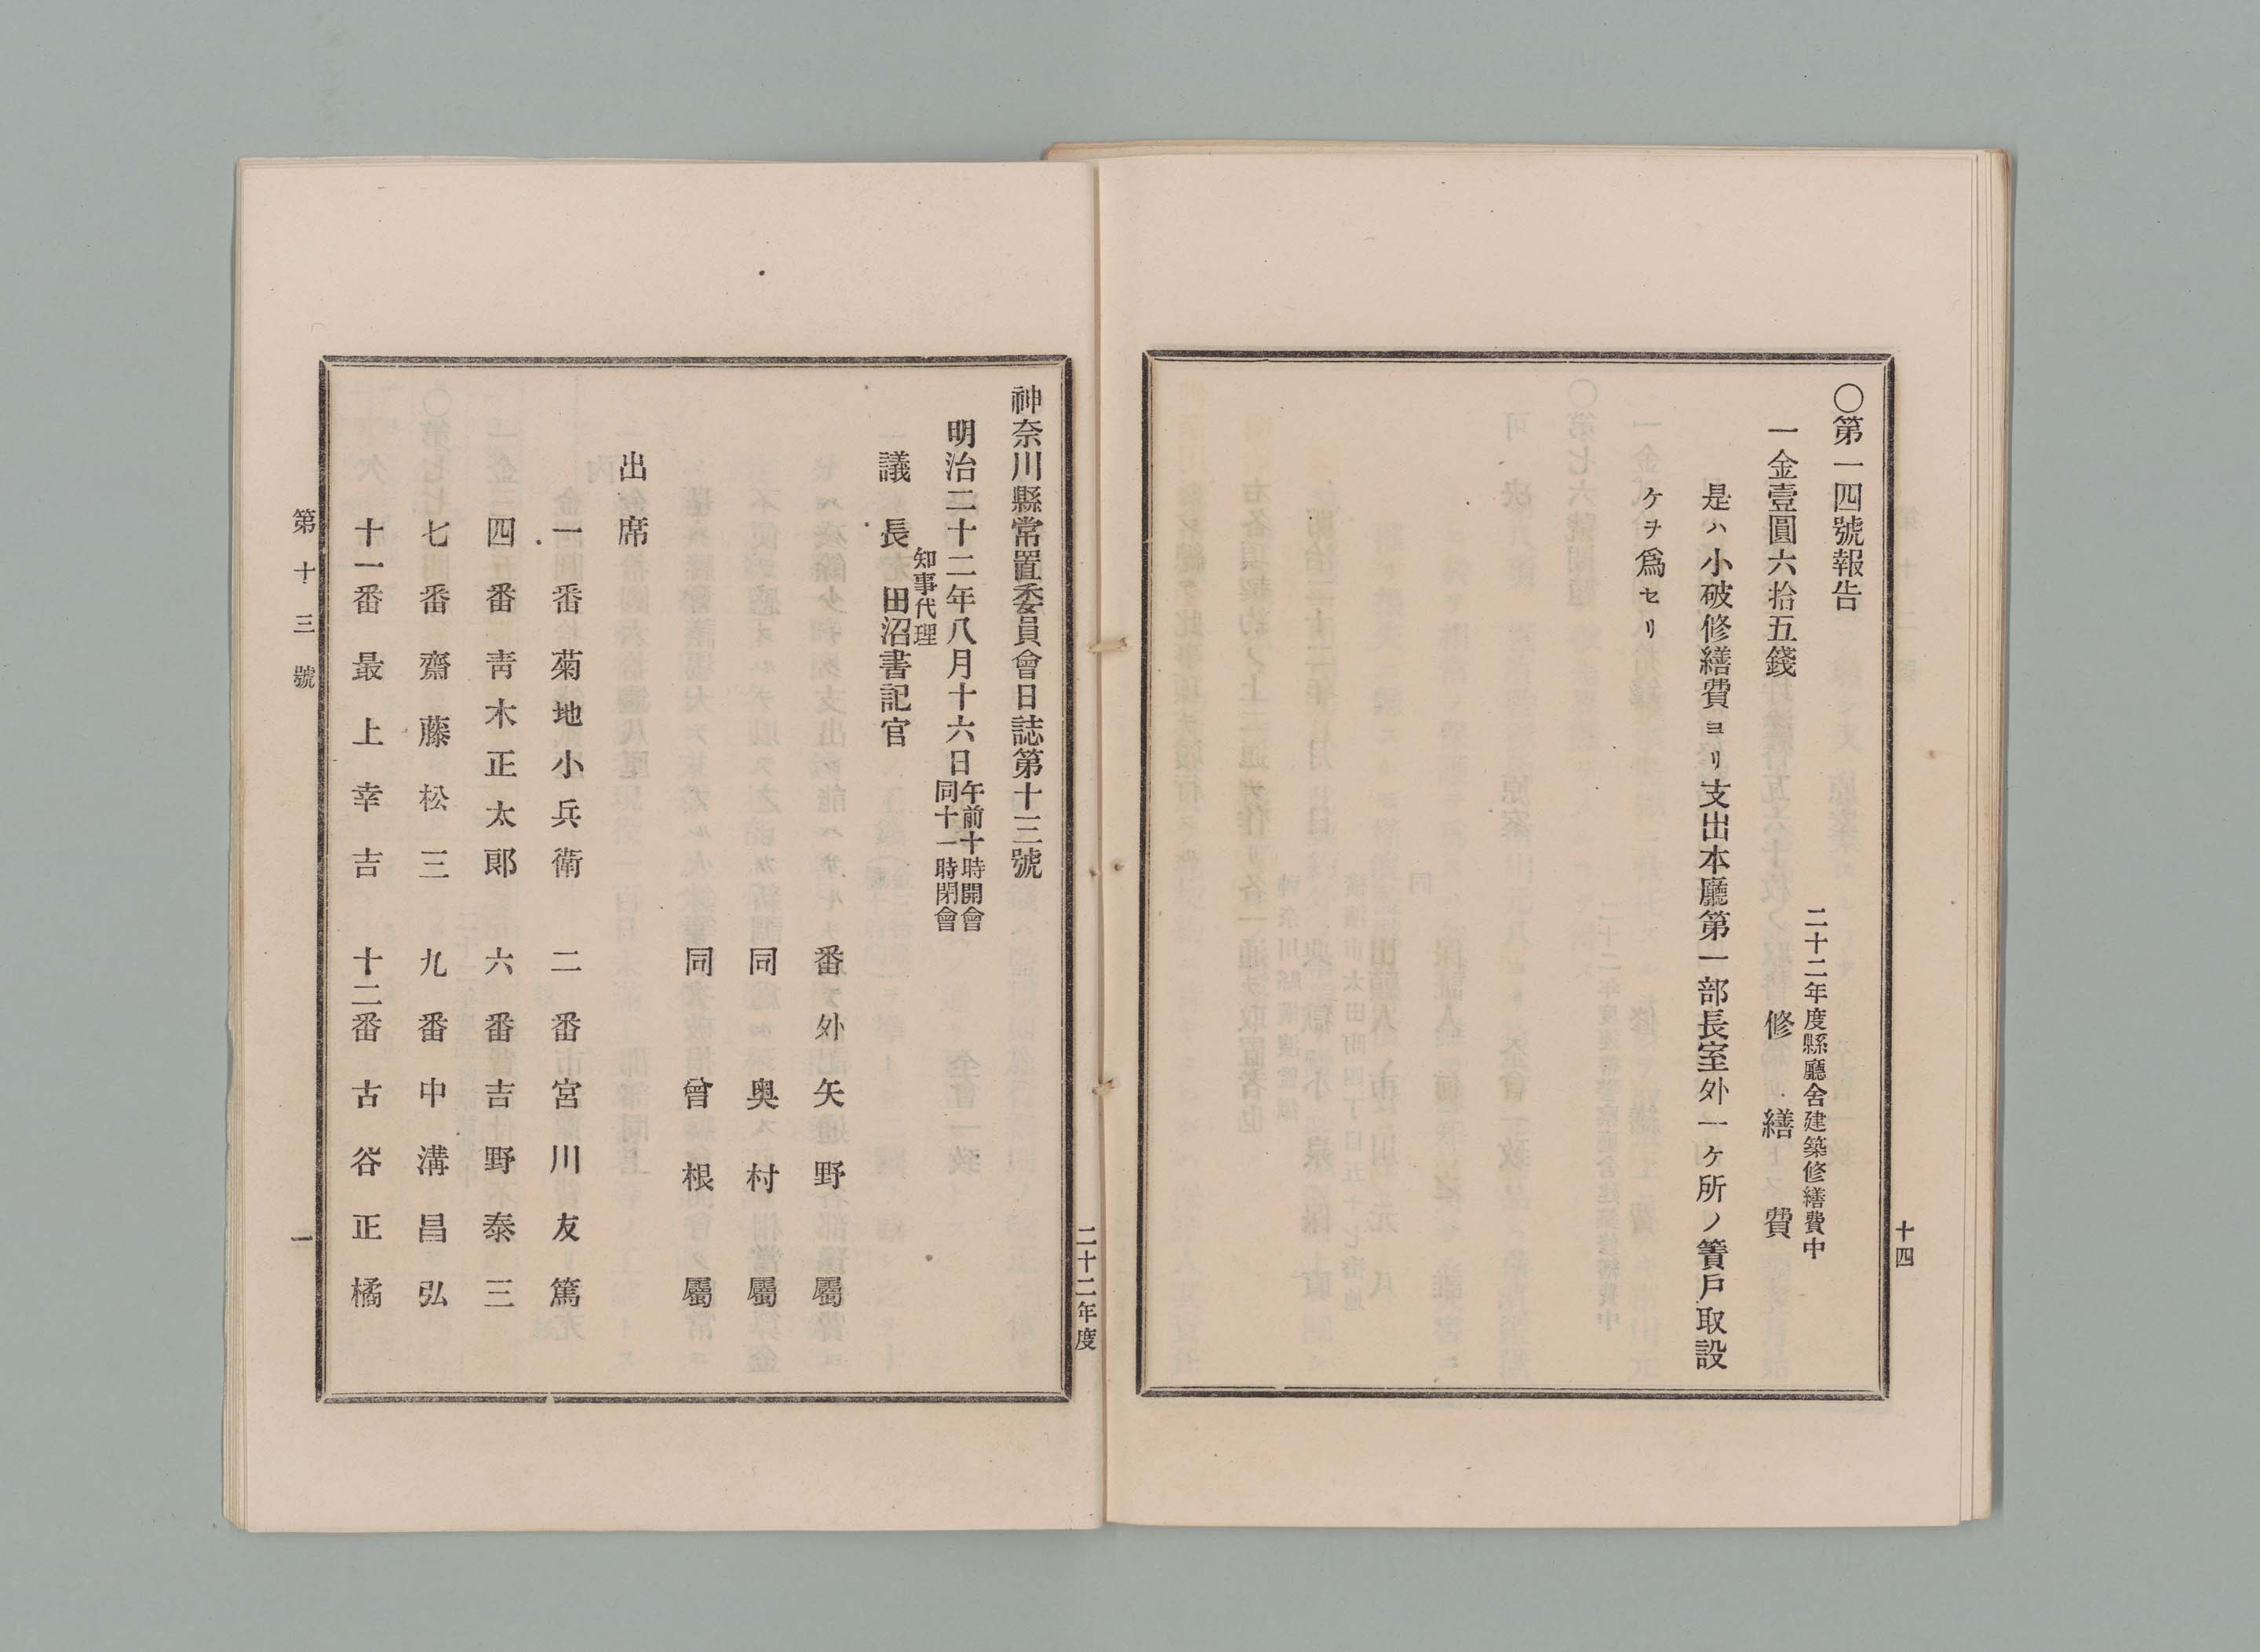 〇第一四號報告
二十二年度縣廳舍建築修繕費中
一金壹圓六拾五錢 修繕費
是ハ小破修繕費ヨリ支出本廳第一部長室外一ケ所ノ簀戶取設
ケヲ爲セリ
十四
二十二年度
神奈川縣常置委員會日誌第十三號
明治二十二年八月十六日午前十時開會
同十一時閉會
知事代理
議長 田沼書記官
番外 矢野屬
同 奥村屬
同 曾根屬
出席
一番 菊地小兵衛 二番 宮川友篤
四番 靑木正太郎 六番 吉野泰三
七番 齋藤松三 九番 中溝昌弘
十一番 最上幸吉 十二番 古谷正橘
第十三號
一